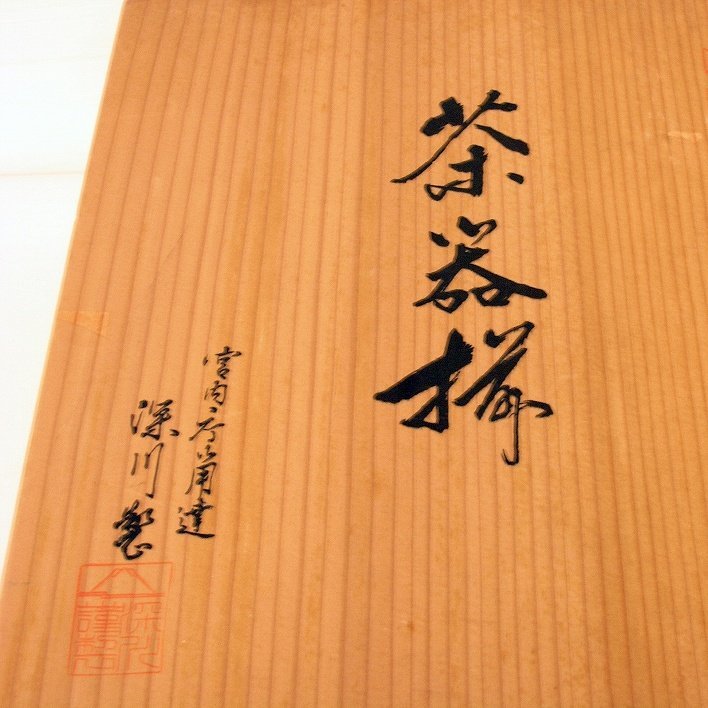 茶器揃
宮内庁御用達
深川製
深川
謹製